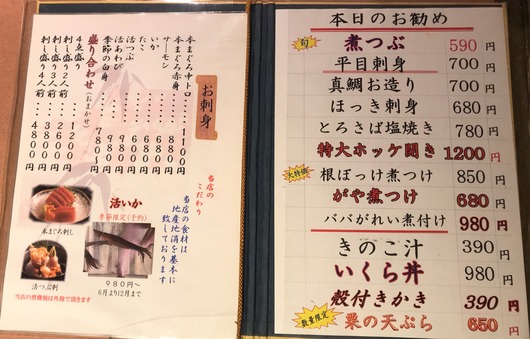 お刺身
本まぐろ中トロ・・・1100円
本まぐろ赤身・・・880円
サーモン・・・・680円
いか・・・・600円
たこ・・・・600円
活つぶ・・・・980円
活あわび・・・・980円
季節の白身・・・780~円
盛り合わせ(おまかせ)
4点盛り・・・・1200円
刺し盛り2人前・・・2600円
刺し盛り3人前・・・3800円
刺し盛り4人前・・・4800円
当店の
こだわり
当店の食材は
地産地消を基本に
致しております
活いか
季節限定(予約)
980円~
6月より12月まで
本まぐろ刺し
活つぶ刺
当店の消費税は外税で頂きます
本日のお勧め
旬 煮つぶ 590円
平目刺身 700円
真鯛お造り 700円
ほっき刺身 680円
とろさば塩焼き 780円
特大ホッケ開き 1200円
大特価 根ぼっけ煮つけ 850円
がや煮つけ 680円
ババがれい煮付け 980円
きのこ汁 390円
いくら丼 980円
殻付きかき 390円
数量限定 栗の天ぷら 650円